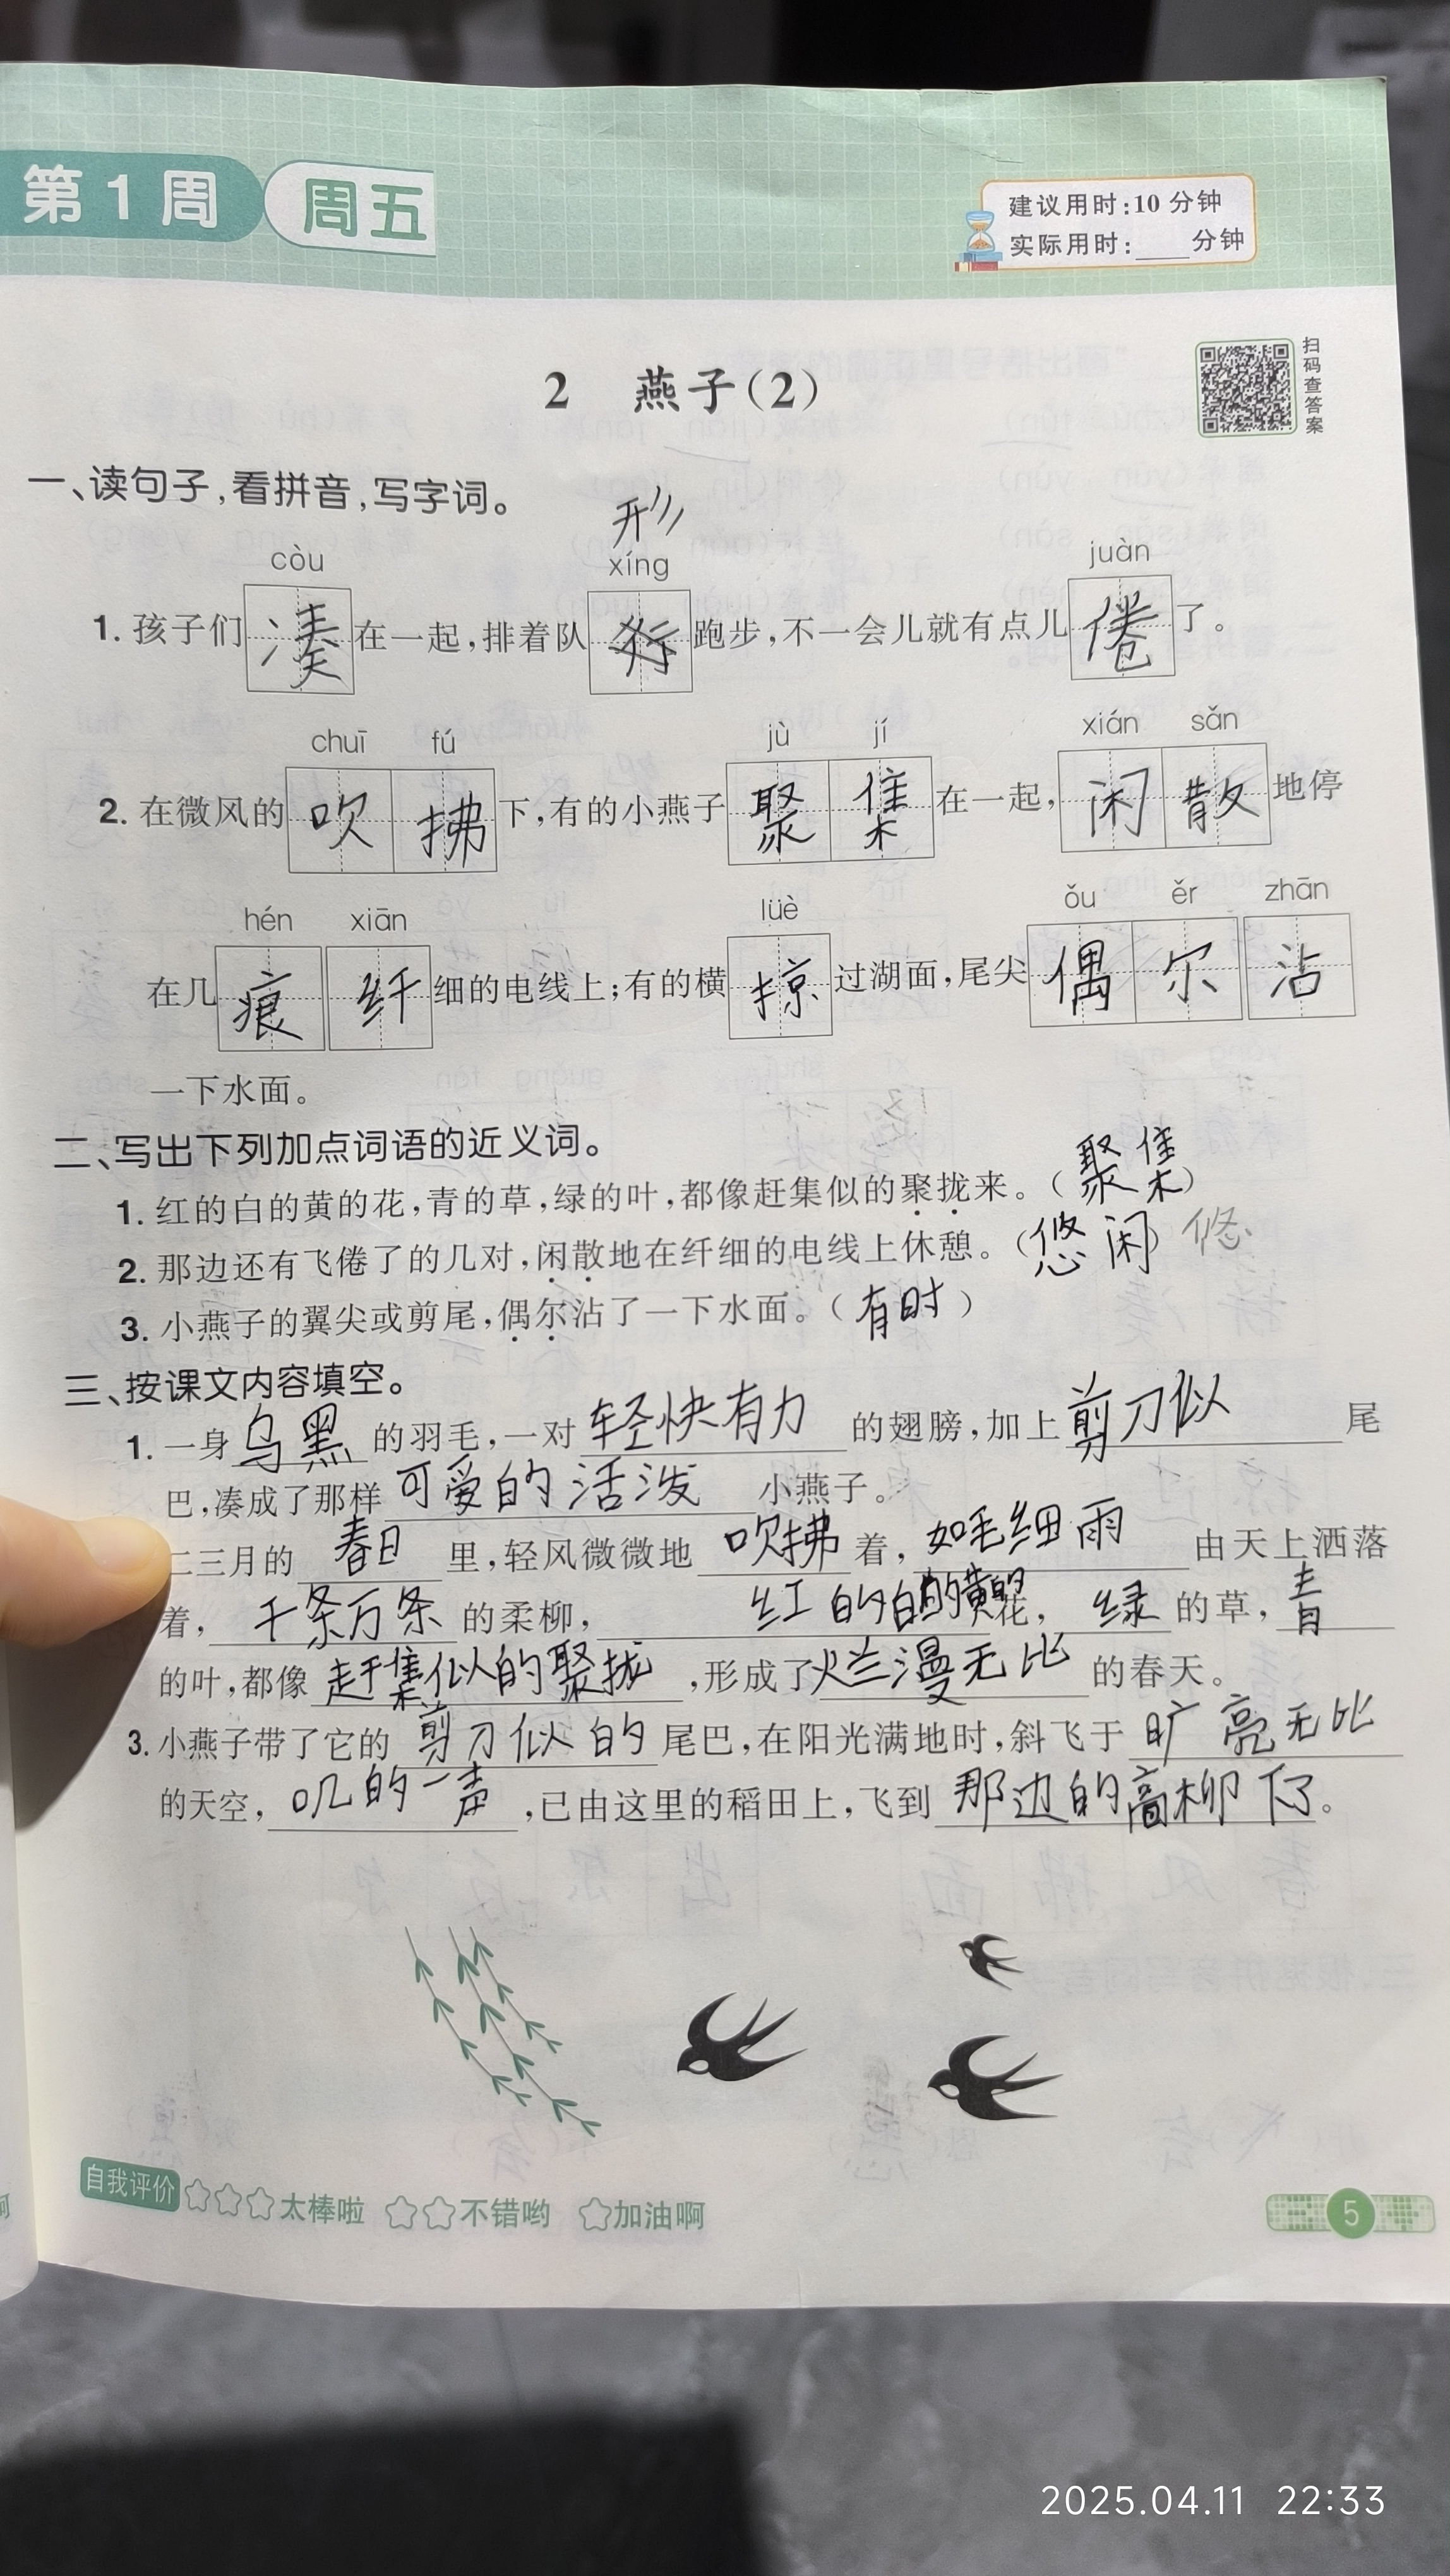 第1周 周五
建议用时:10 分钟
实际用时:____分钟
扫码查答案
2 燕子(2)
一、读句子,看拼音,写字词。
形
còu xíng juàn
1. 孩子们凑在一起,排着队 跑步,不一会儿就有点儿倦了。
chuī fú jù jí xián sǎn
2. 在微风的吹拂下,有的小燕子聚集在一起,闲散地停
hén xiān lüè ǒu ěr zhān
在几痕纤细的电线上;有的横掠过湖面,尾尖偶尔沾
一下水面。
二、写出下列加点词语的近义词。
1. 红的白的黄的花,青的草,绿的叶,都像赶集似的聚拢来。(聚集)
2. 那边还有飞倦了的几对,闲散地在纤细的电线上休憩。(悠闲) 悠
3. 小燕子的翼尖或剪尾,偶尔沾了一下水面。(有时)
三、按课文内容填空。
1. 一身乌黑的羽毛,一对轻快有力的翅膀,加上剪刀似尾
巴,凑成了那样可爱的活泼小燕子。
二三月的春日里,轻风微微地吹拂着,如毛细雨由天上洒落
着,千条万条的柔柳,红的白的黄的花,绿的草,青
的叶,都像赶集似的聚拢,形成了烂漫无比的春天。
3. 小燕子带了它的剪刀似的尾巴,在阳光满地时,斜飞于旷亮无比
的天空,叽的一声,已由这里的稻田上,飞到那边的高柳下了。
自我评价 ☆☆☆太棒啦 ☆☆不错哟 ☆加油啊
5
2025.04.11 22:33